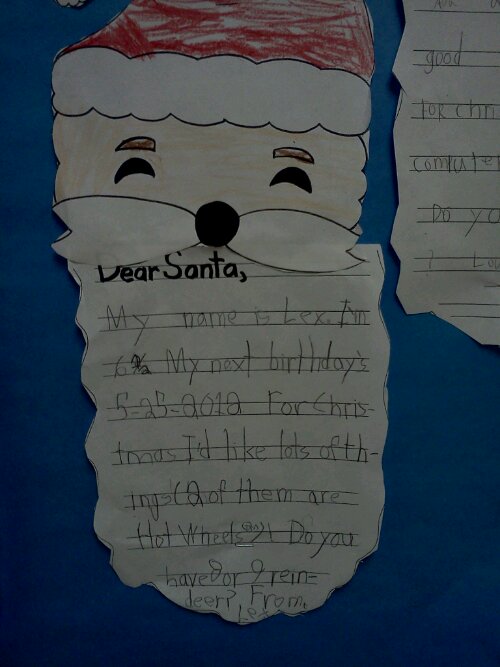 Dear Santa,
My name is Lex. I'm
6½ My next birthday's
5-25-2012 For Chris-
tmas I'd like lots of th-
ings(2 of them are
Hot Wheels)! Do you
have 8 or 9 rein-
deer? From,
Lex
good
for chri
comute
Do yo
? Lo